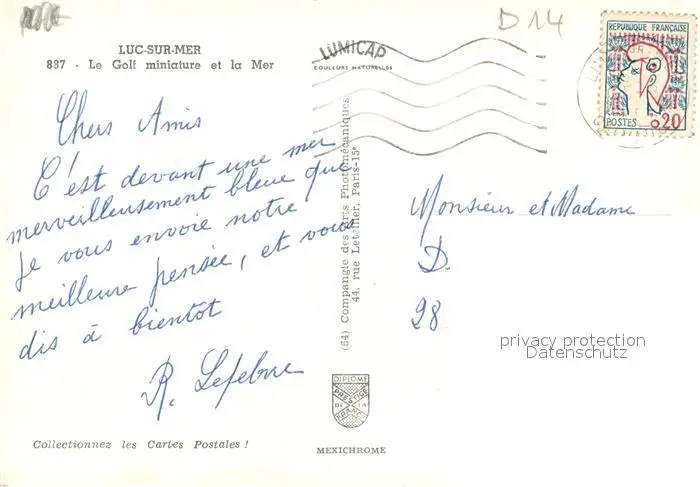 D14
LUC-SUR-MER
887 - Le Golf miniature et la Mer
Chers Amis
C'est devant une mer
merveilleusement bleue que
je vous envoie notre
meilleure pensée, et vous
dis à bientôt
R. Lefebvre
Collectionnez les Cartes Postales !
LUMICAP
COULEURS NATURELLES
(64) Compangie des Arts Photomécaniques
44, rue Letellier, Paris-15e
DIPLOME
PRESTIGE
DE LA
FRANCE
MEXICHROME
REPUBLIQUE FRANÇAISE
POSTES 0,20
Monsieur et Madame
D.
28
privacy protection
Datenschutz